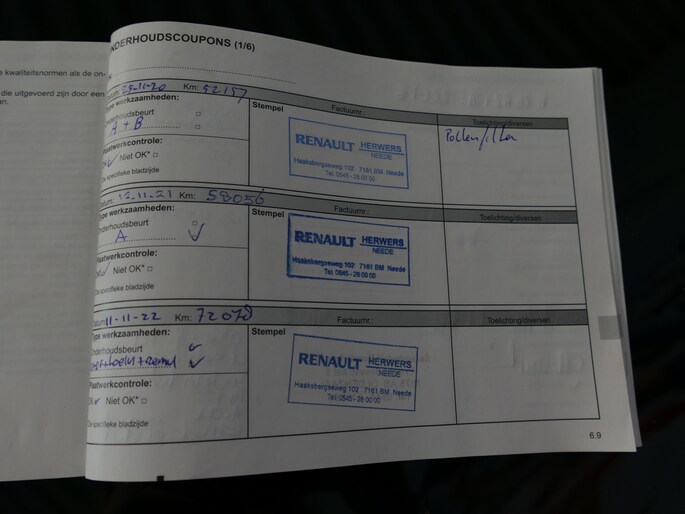 NDERHOUDSCOUPONS (1/6)
e kwaliteitsnormen als de on-
die uitgevoerd zijn door een
an.
Km: 52157
pe werkzaamheden:
derhoudsbeurt
A + B
aatwerkcontrole:
Niet OK* □
De specifieke bladzijde
Stempel
Factuurnr.:
Toelichting/diversen
RENAULT HERWERS
NEEDE
Haaksbergseweg 102 7161 BM Neede
Tel. 0545 - 28 00 00
Pollenfilter
atum: 12-11-21 Km: 58056
Type werkzaamheden:
nderhoudsbeurt
A
laatwerkcontrole:
Niet OK* □
De specifieke bladzijde
Stempel
Factuurnr.:
Toelichting/diversen
RENAULT HERWERS
NEEDE
Haaksbergseweg 102 7161 BM Neede
Tel. 0545 - 28 00 00
atum: 11-11-22 Km: 72078
Type werkzaamheden:
nderhoudsbeurt
Plaatwerkcontrole:
OK Niet OK* □
De specifieke bladzijde
Stempel
Factuurnr.:
Toelichting/diversen
RENAULT HERWERS
NEEDE
Haaksbergseweg 102 7161 BM Neede
Tel. 0545 - 28 00 00
6.9